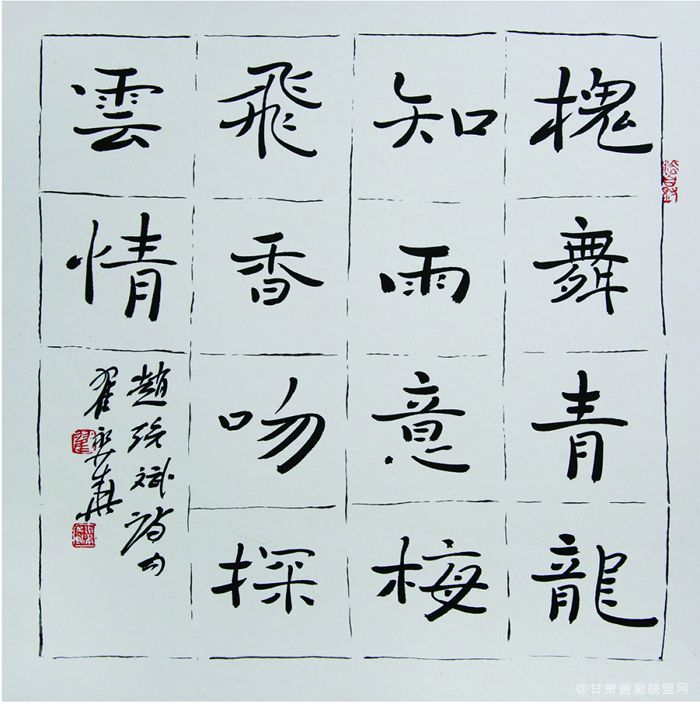 槐舞青龍
知雨意梅
飛香吻探
雲情
趙強斌詩句
翟奧華
@甘肃画廊联盟网